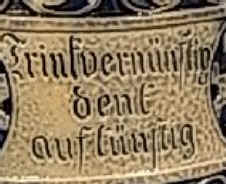 Trink vernünftig
denk
auf künftig